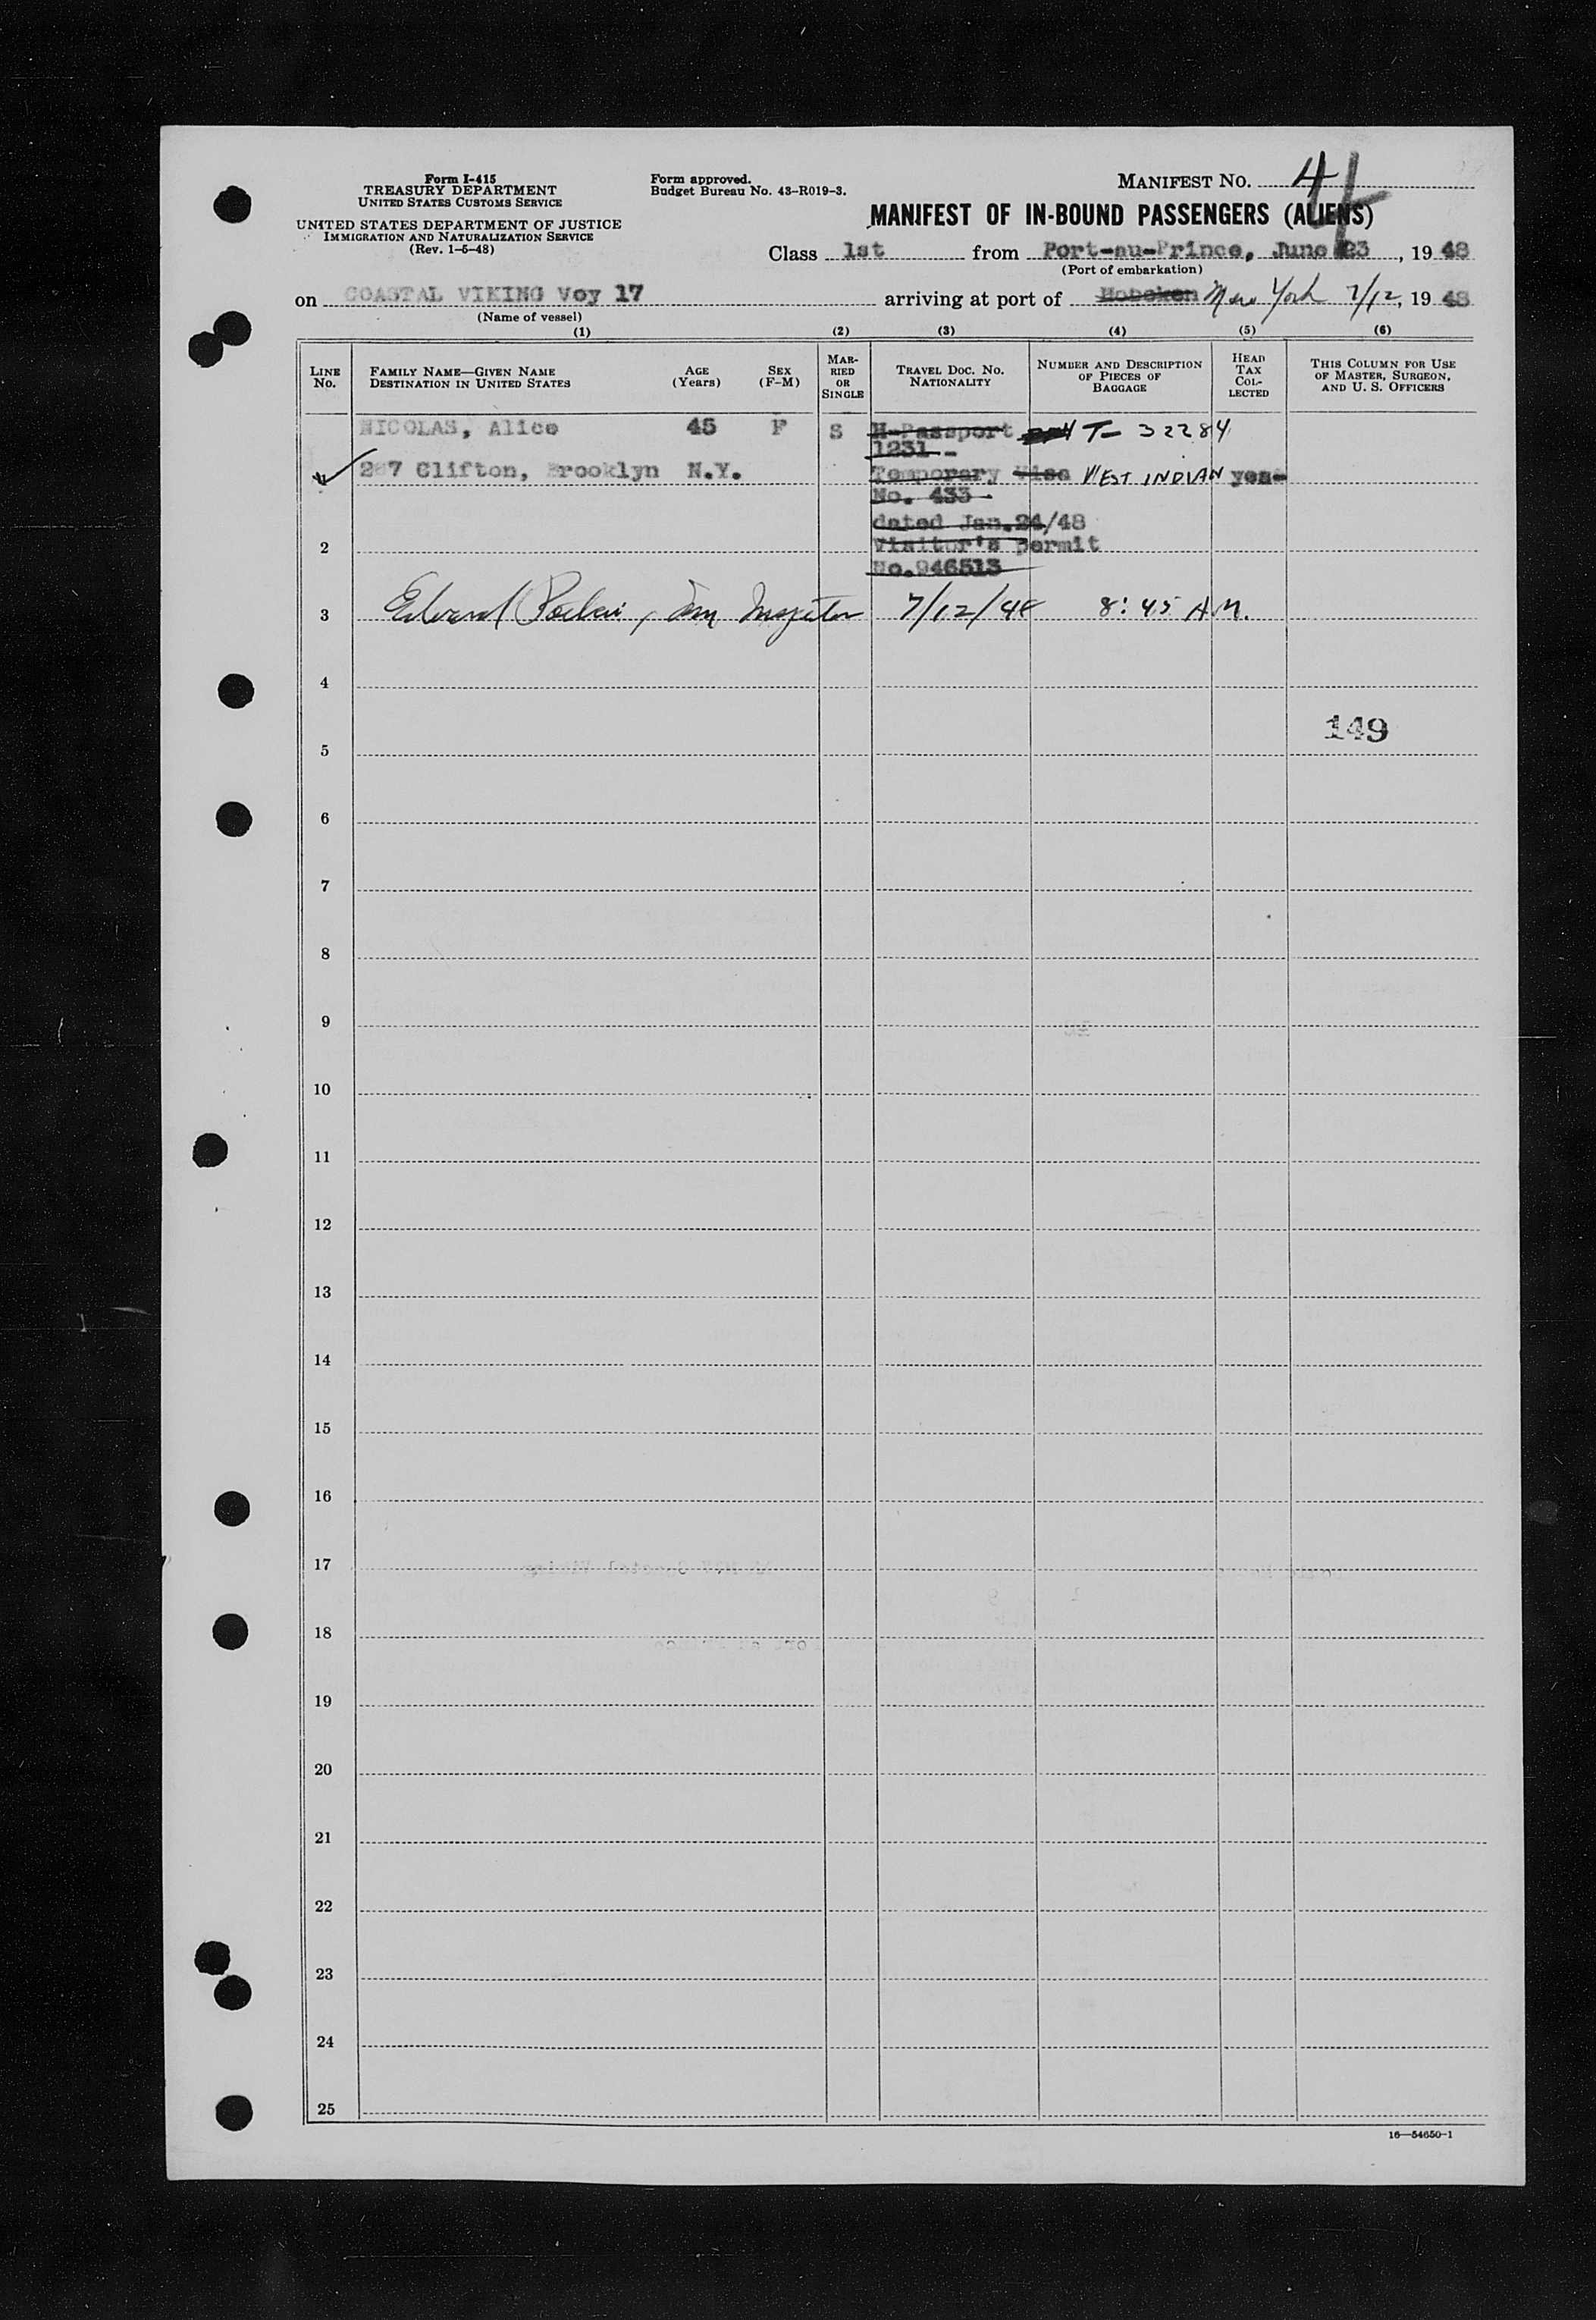 Form I-415
TREASURY DEPARTMENT
UNITED STATES CUSTOMS SERVICE
UNITED STATES DEPARTMENT OF JUSTICE
IMMIGRATION AND NATURALIZATION SERVICE
(Rev. 1-5-48)
Form approved.
Budget Bureau No. 43-R019-3.
MANIFEST NO. 4
MANIFEST OF IN-BOUND PASSENGERS (ALIENS)
Class 1st from Port-au-Prince, June 23, 1948
(Port of embarkation)
on COASTAL VIKING Voy 17 arriving at port of Hoboken New York 7/12, 1948
(Name of vessel)
(1) (2) (3) (4) (5) (6)
LINE No.
FAMILY NAME—GIVEN NAME
DESTINATION IN UNITED STATES
AGE (Years)
SEX (F-M)
MARRIED OR SINGLE
TRAVEL DOC. NO. NATIONALITY
NUMBER AND DESCRIPTION OF PIECES OF BAGGAGE
HEAD TAX COLLECTED
THIS COLUMN FOR USE OF MASTER, SURGEON, AND U. S. OFFICERS
NICOLAS, Alice 45 F S H-Passport T- 32284
1231 -
1 Clifton, Brooklyn N.Y. Temporary Visa WEST INDIAN yes-
No. 433 -
dated Jan.24/48
2 Visitor's permit
No.946513
3 Edward 7/12/48 8:45 A.M.
4
149
5
6
7
8
9
10
11
12
13
14
15
16
17
18
19
20
21
22
23
24
25
16—54650-1